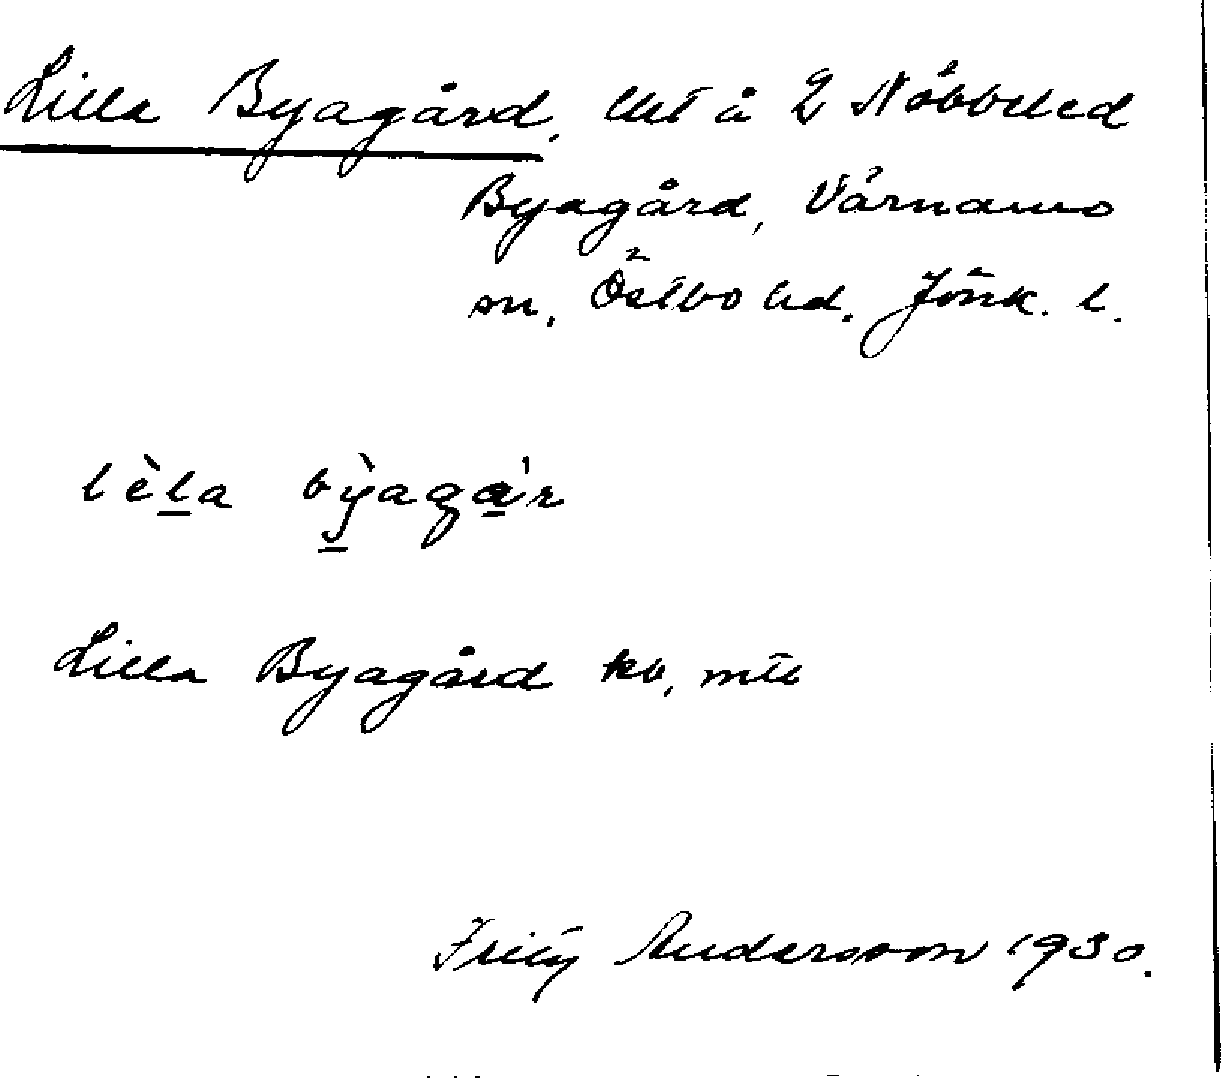 Lilla Byagård, lht å 2 Nöbbeled
Byagård, Värnamo
sn, Östbo hd. Jönk. l.
lèla bỳagá'r
Lilla Byagård kv, mtb
Fritz Andersson 1930.